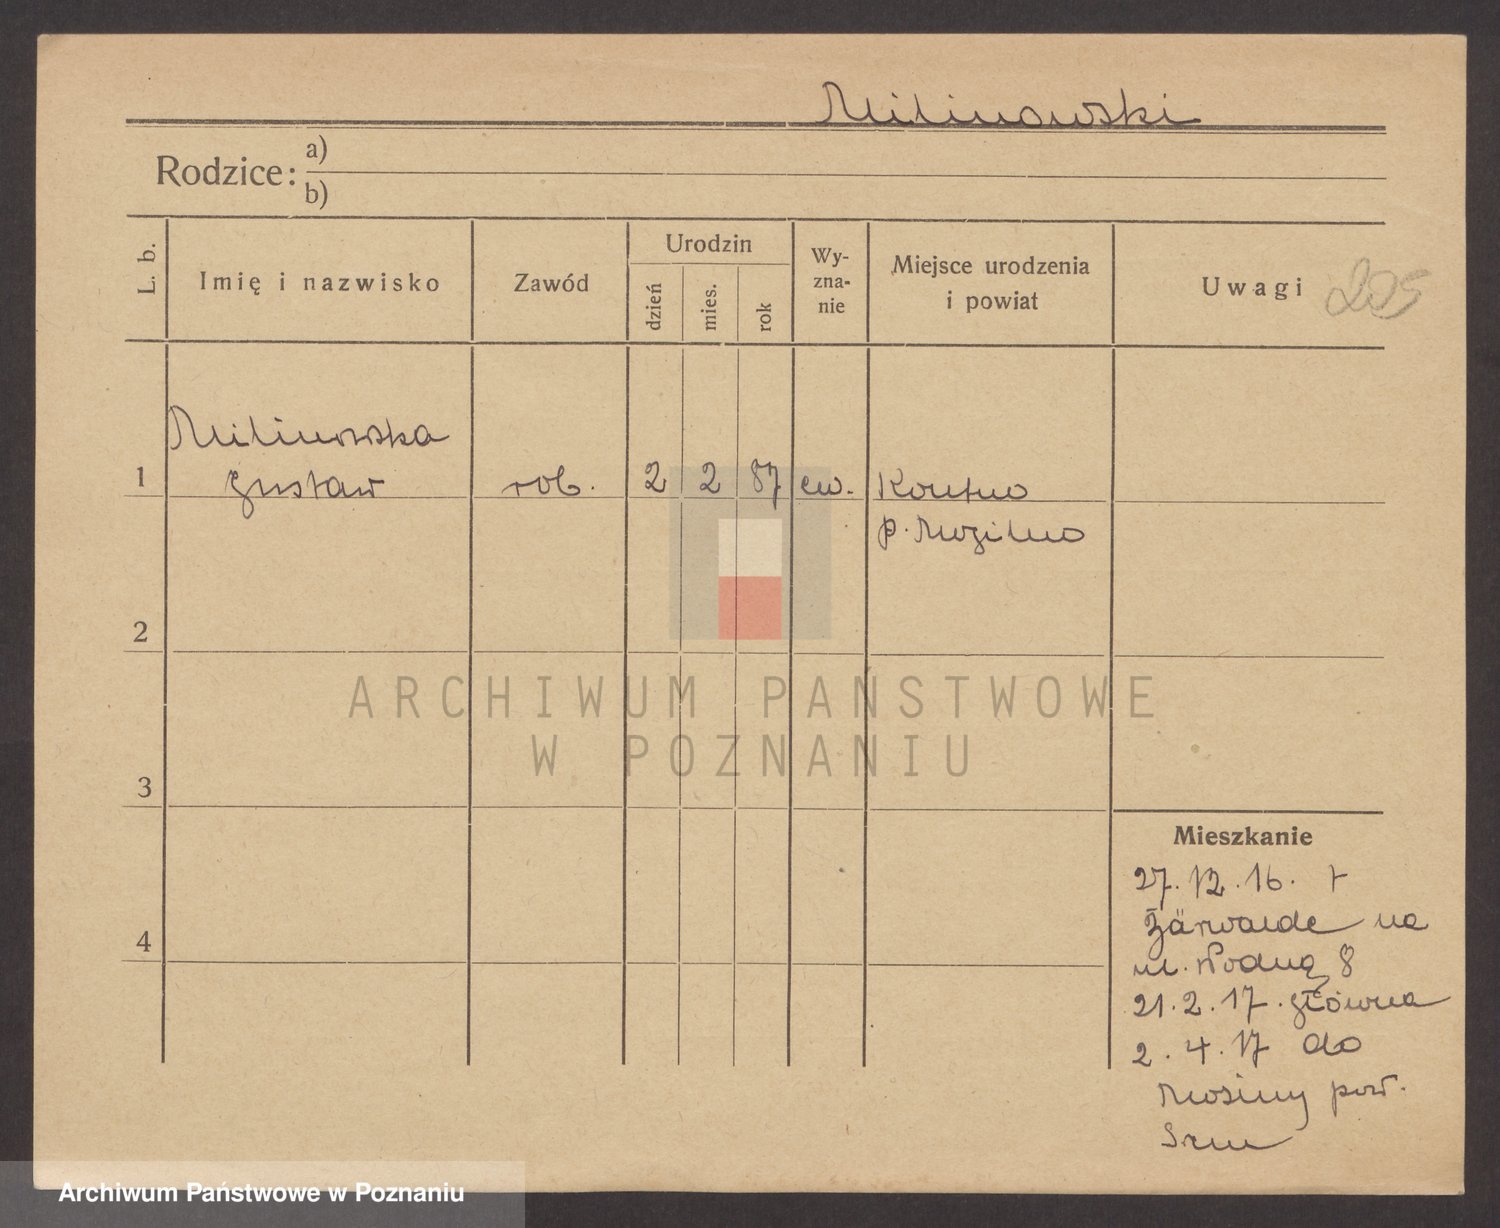 Milinowski
Rodzice: a)
b)
L. b.
Imię i nazwisko
Zawód
Urodzin
dzień
mies.
rok
Wy-
zna-
nie
Miejsce urodzenia
i powiat
Uwagi
205
Milinowska
1 Gustaw rob. 2 2 87 ew.
p. Mogilno
2
3
4
Mieszkanie
27.12.16. t
Bärwalde na
ul. Wodną 8
21.2.17. Główna
2.4.17 do
Mosiny pow.
Srem
ARCHIWUM PAŃSTWOWE
W POZNANIU
Archiwum Państwowe w Poznaniu